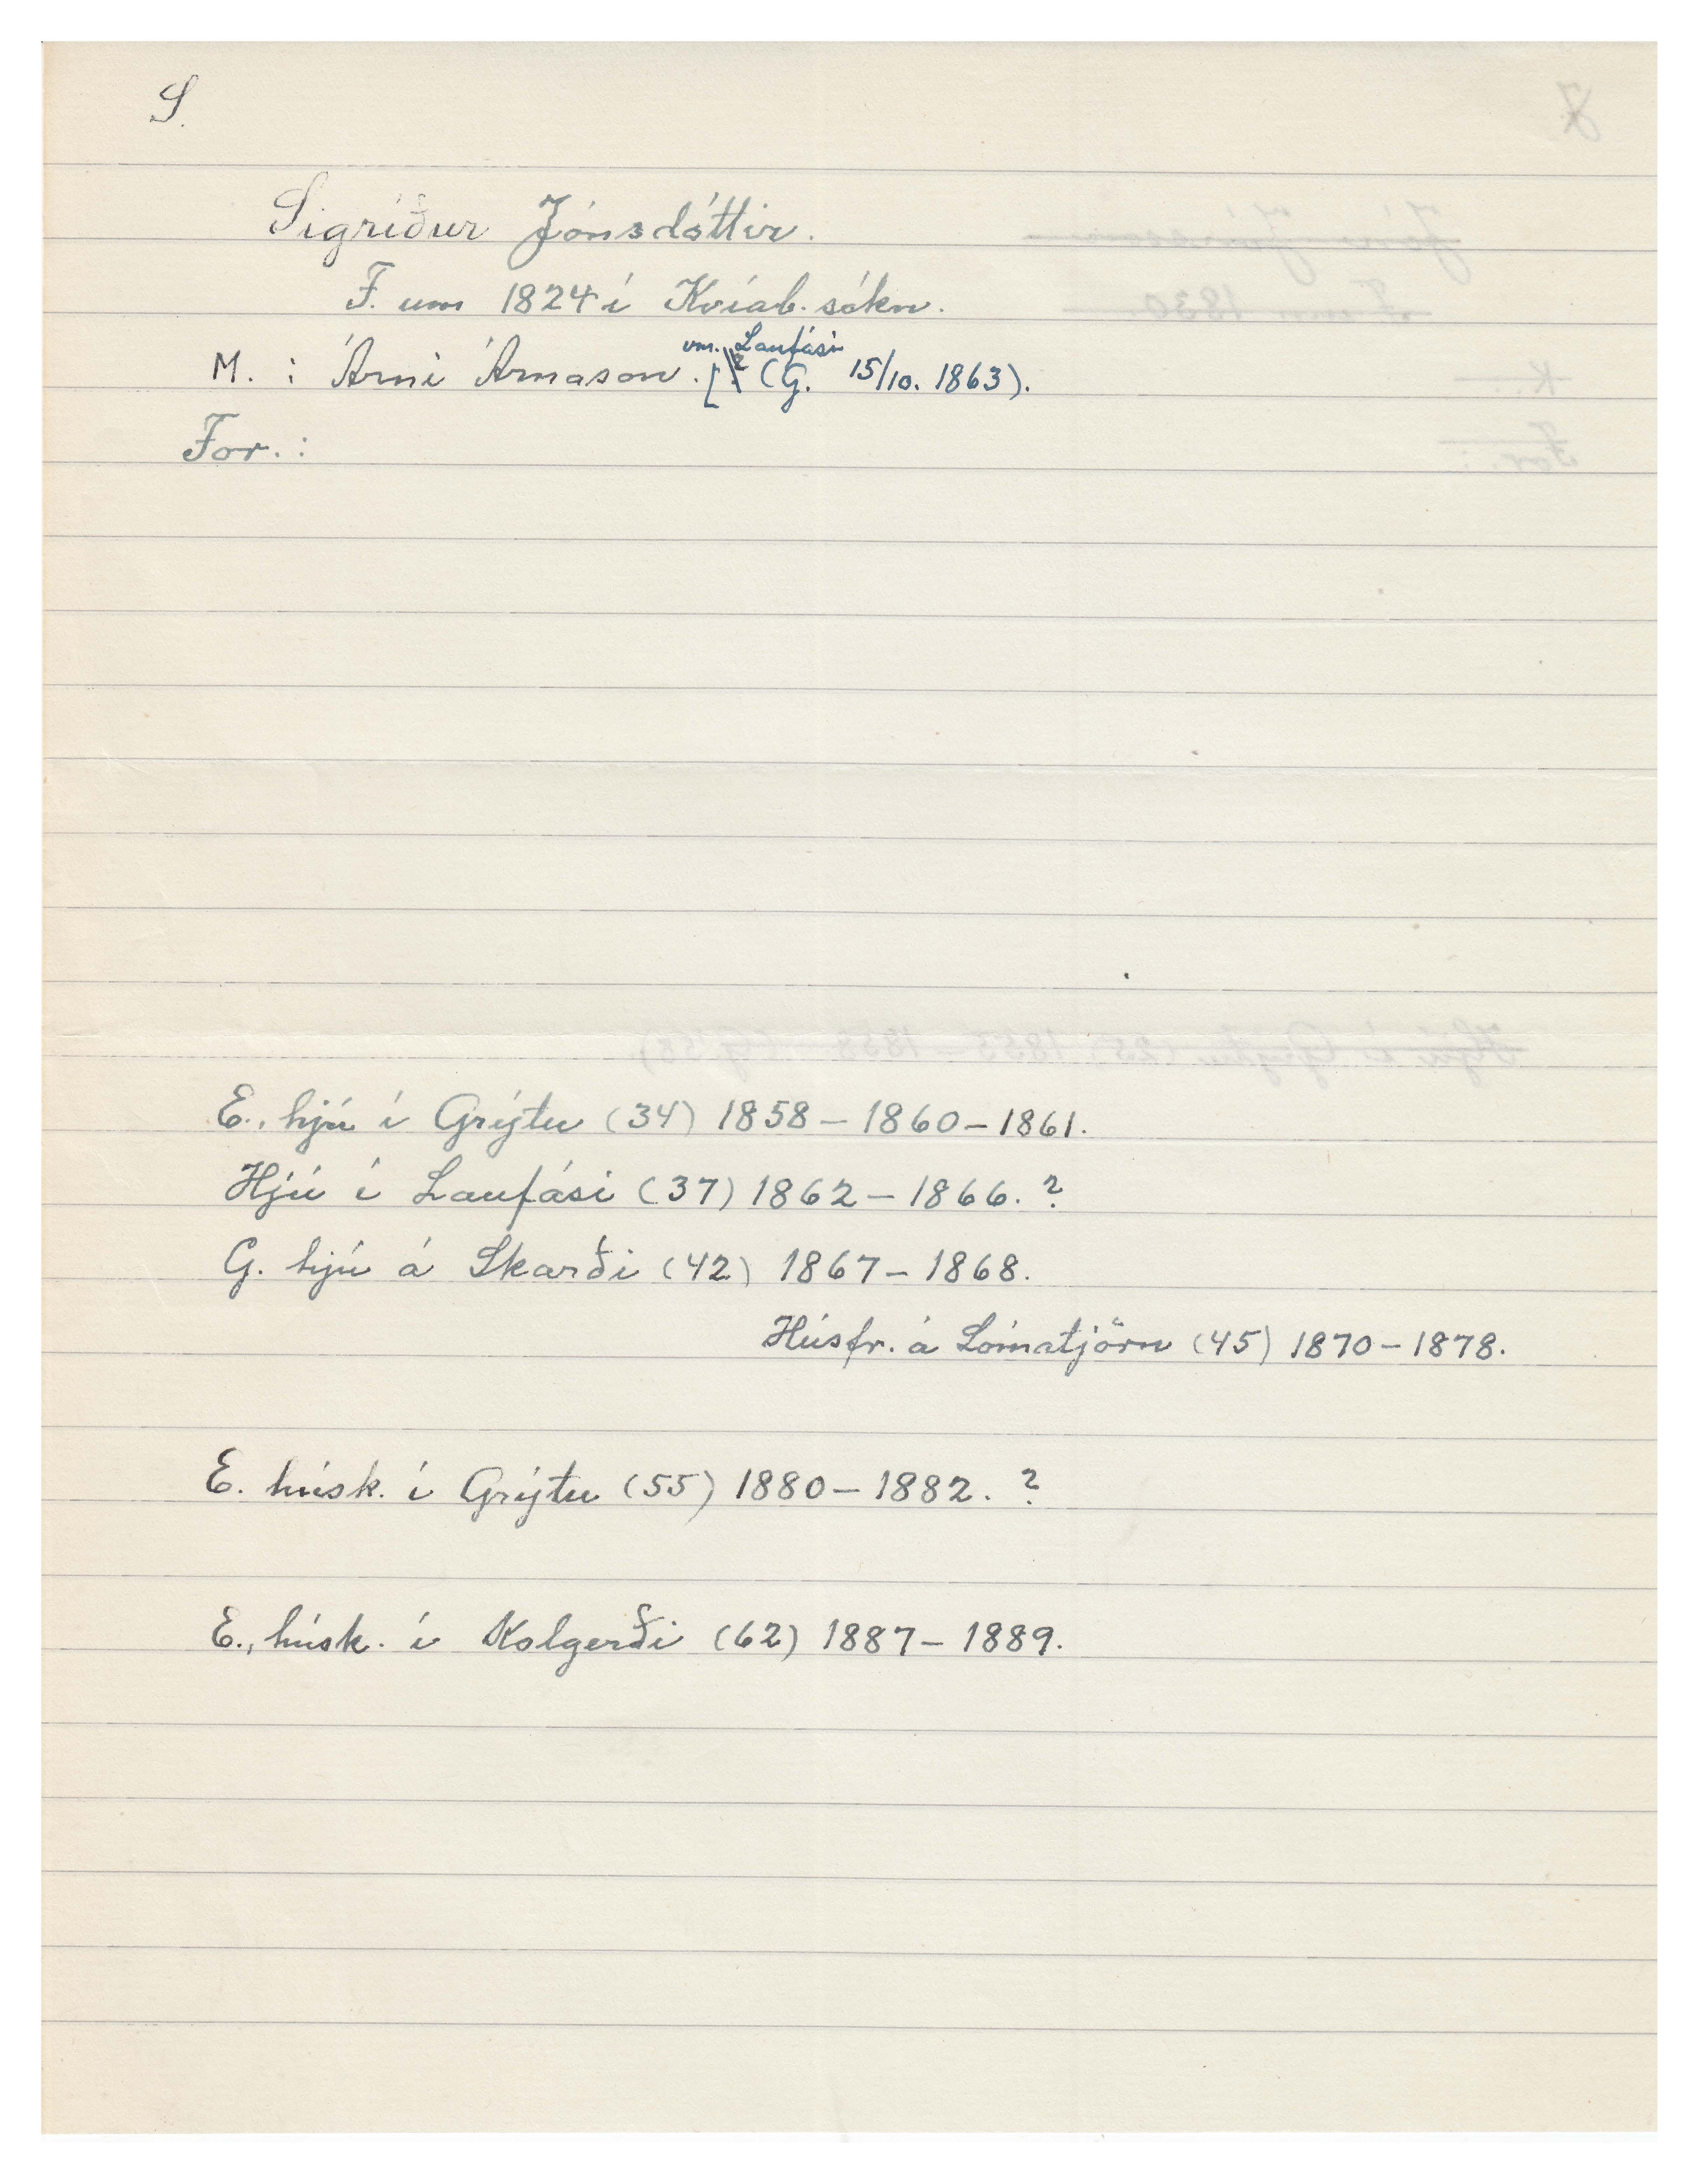 S.
Sigríður Jónsdóttir.
F. um 1824 í Kvíab. sókn.
vm. Laufási
M. : Árni Árnason. [? (G. 15/10. 1863).
For. :
E., hjú í Grýtu (34) 1858 – 1860 – 1861.
Hjú í Laufási (37) 1862 – 1866. ?
G. hjú á Skarði (42) 1867 – 1868.
Húsfr. á Lómatjörn (45) 1870 – 1878.
E. húsk. í Grýtu (55) 1880 – 1882. ?
E., húsk. í Kolgerði (62) 1887 – 1889.